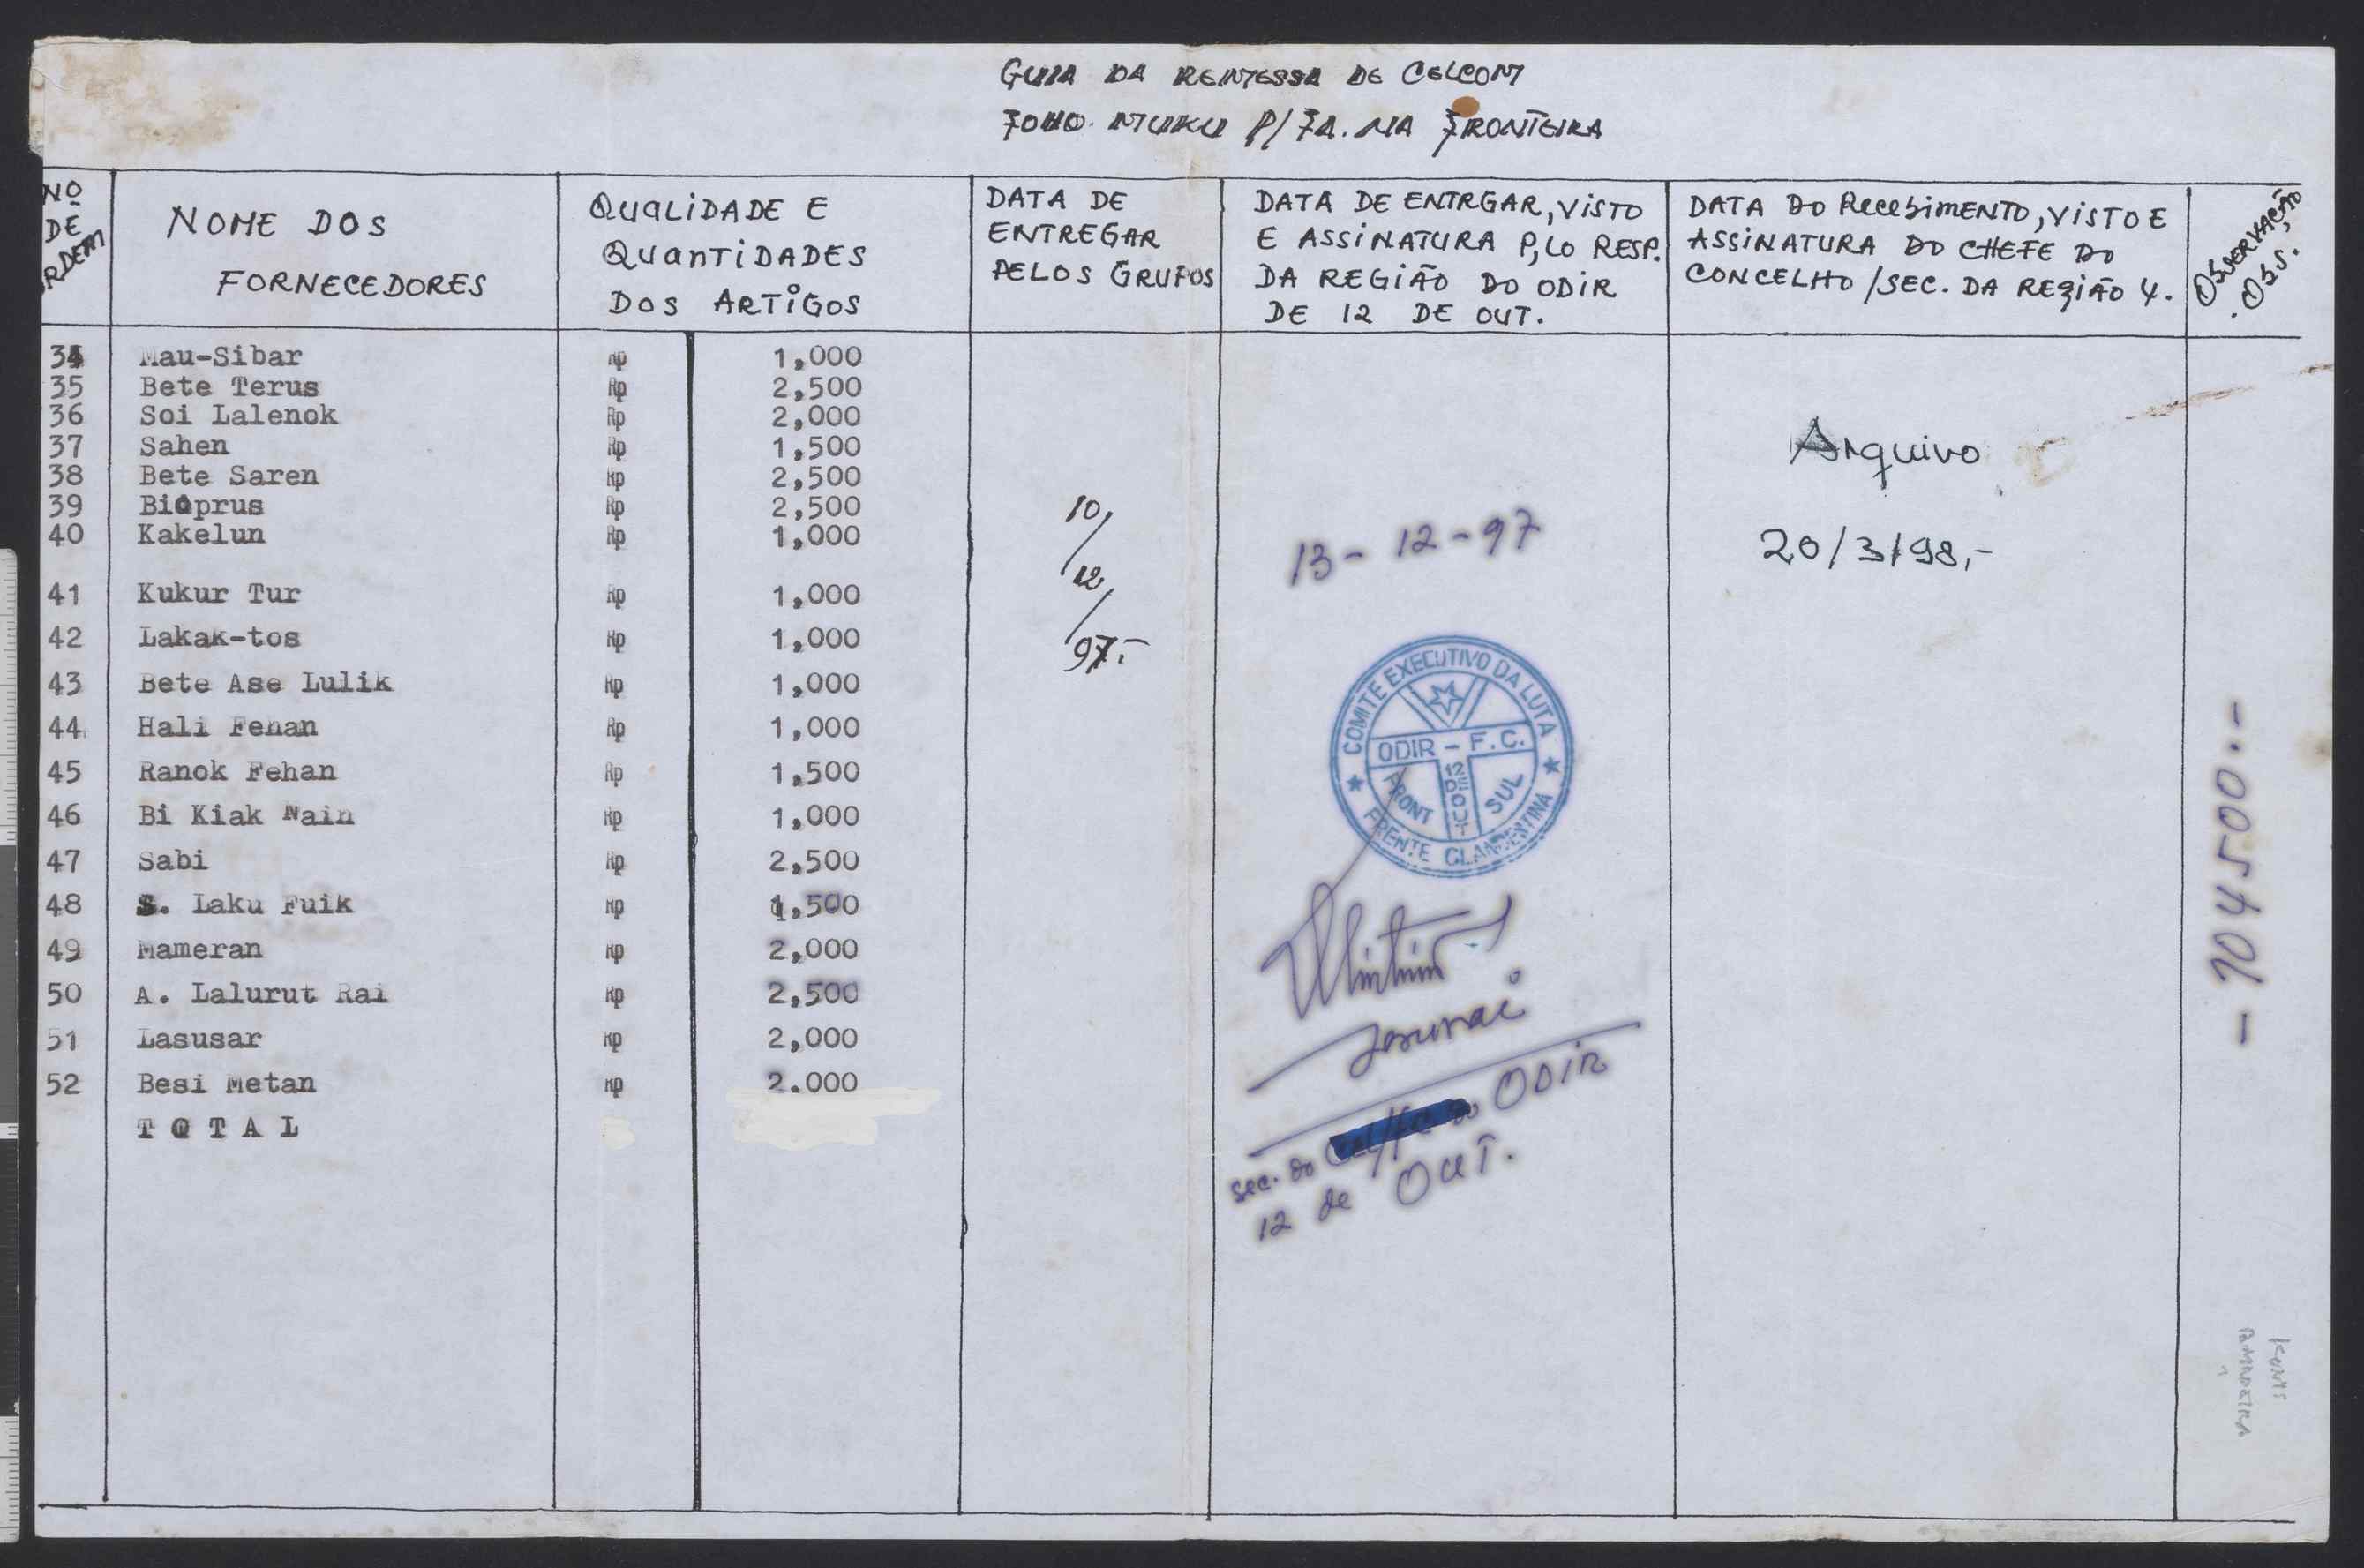 GUIA DA REMESSA DE CELCOM
FOHO MUKU P/ FA. NA FRONTEIRA
Nº DE RDEM
NOME DOS FORNECEDORES
QUALIDADE E QUANTIDADES DOS ARTIGOS
DATA DE ENTREGAR PELOS GRUPOS
DATA DE ENTRGAR, VISTO E ASSINATURA P,LO RESP. DA REGIÃO DO ODIR DE 12 DE OUT.
DATA DO RecebiMENTO, VISTO E ASSINATURA DO CHEFE DO CONCELHO / SEC. DA REgIÃO 4.
OBSERVAÇÃO
. OBS.
34 Mau-Sibar Rp 1,000
35 Bete Terus Rp 2,500
36 Soi Lalenok Rp 2,000
37 Sahen Rp 1,500
38 Bete Saren Rp 2,500
39 Bioprus Rp 2,500
40 Kakelun Rp 1,000
41 Kukur Tur Rp 1,000
42 Lakak-tos Rp 1,000
43 Bete Ase Lulik Rp 1,000
44 Hali Fehan Rp 1,000
45 Ranok Fehan Rp 1,500
46 Bi Kiak Nain Rp 1,000
47 Sabi Rp 2,500
48 S. Laku Fuik Rp 1,500
49 Mameran Rp 2,000
50 A. Lalurut Rai Rp 2,500
51 Lasusar Rp 2,000
52 Besi Metan Rp 2.000
T O T A L
10/12/97.-
13-12-97
COMITE EXECUTIVO DA LUTA
ODIR - F.C.
12 DE OUT
FRONT SUL
FRENTE CLANDENTINA
sec. do ODIR
12 de OUT.
Arquivo
20/3/98,-
- 104500.-